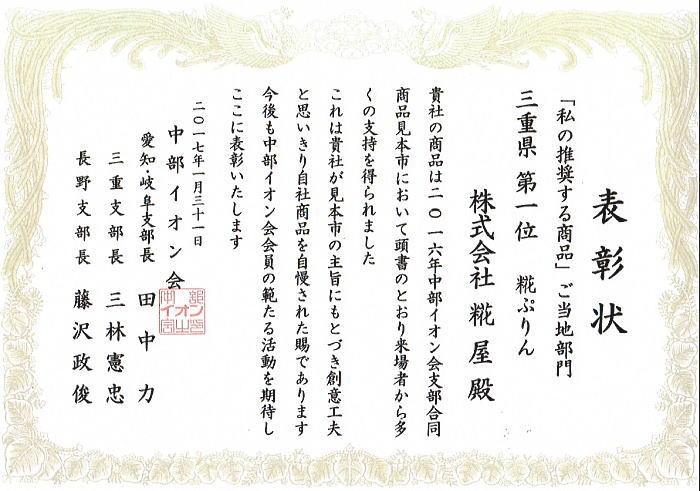 表彰状
「私の推奨する商品」ご当地部門
三重県 第一位 糀ぷりん
株式会社 糀屋 殿
貴社の商品は二〇一六年中部イオン会支部合同
商品見本市において頭書のとおり来場者から多
くの支持を得られました
これは貴社が見本市の主旨にもとづき創意工夫
と思いきり自社商品を自慢された賜であります
今後も中部イオン会会員の範たる活動を期待し
ここに表彰いたします
二〇一七年一月三十一日
中部イオン会
愛知・岐阜支部長 田中力
三重支部長 三林憲忠
長野支部長 藤沢政俊